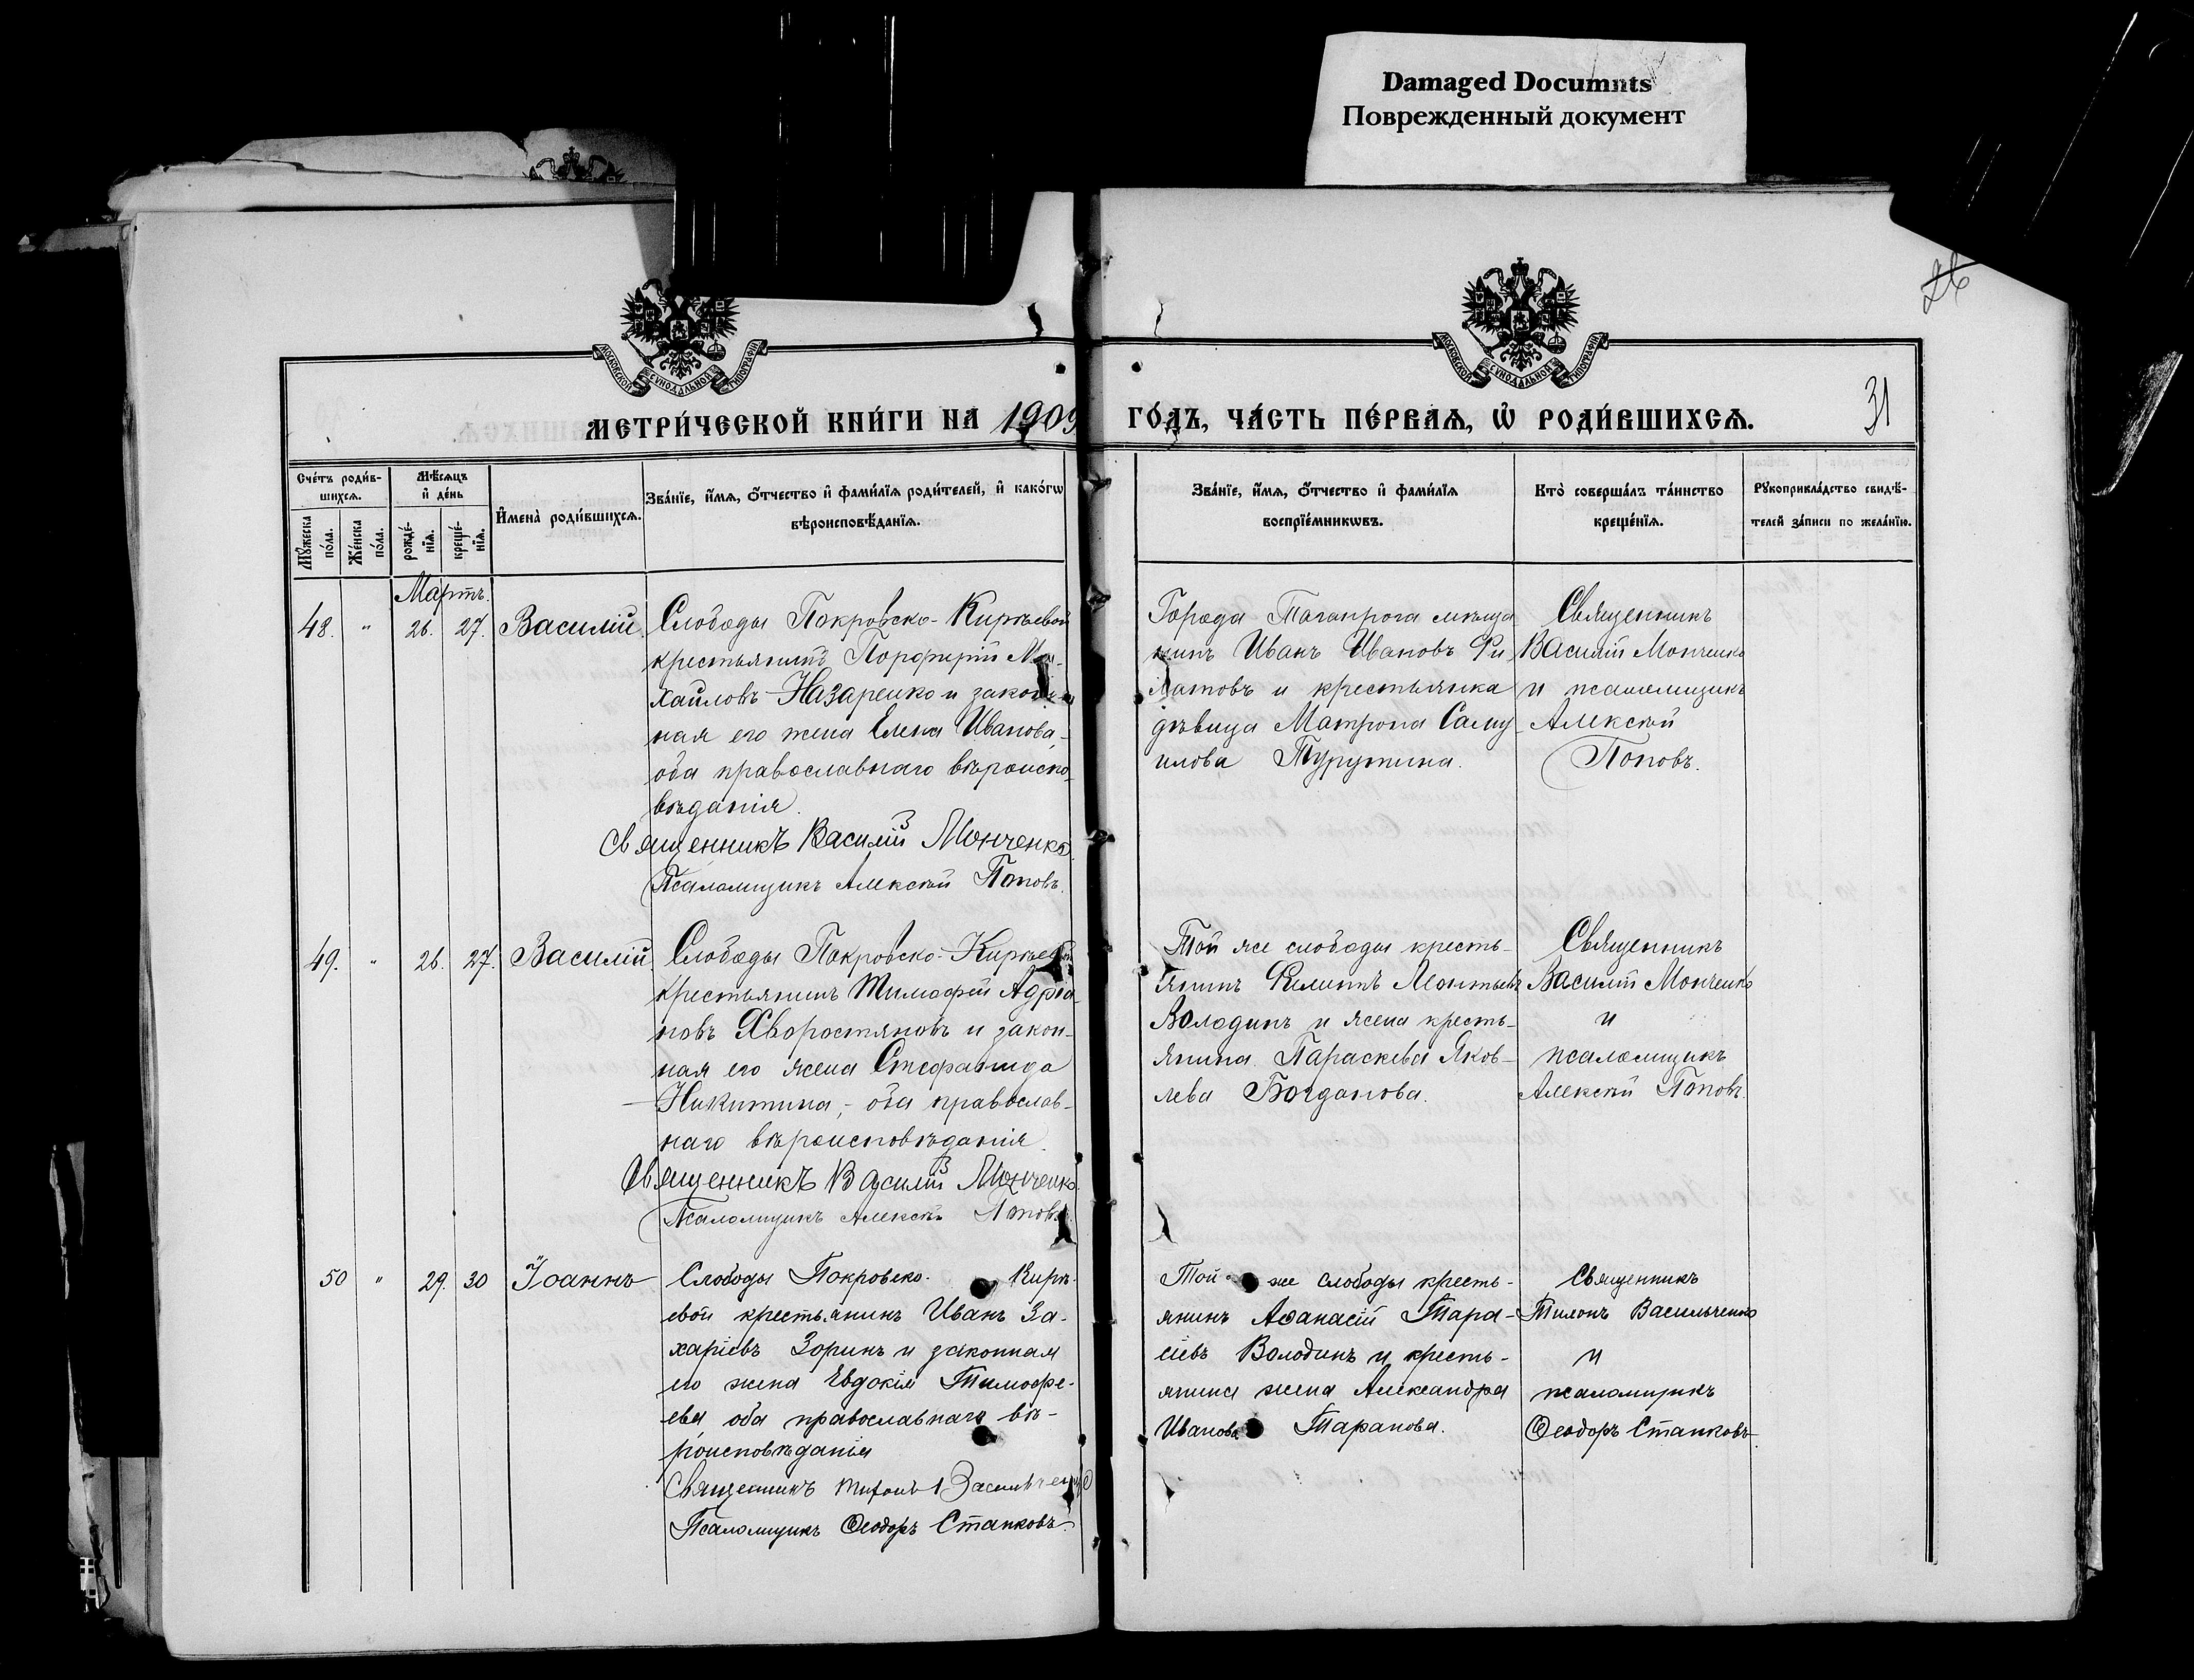 Damaged Documnts
Поврежденный документ
26
31
МОСКОВСКОЙ СѴНОДАЛЬНОЙ ТИПОГРАФІИ
МОСКОВСКОЙ СѴНОДАЛЬНОЙ ТИПОГРАФІИ
МЕТРИ́ЧЕСКОЙ КНИ́ГИ НА 1909 ГО́ДЪ, ЧА́СТЬ ПЕ́РВАѦ, Ѡ҆ РОДИ́ВШИХСѦ.
Сче́тъ роди́в-
шихсѧ.
Мꙋ́жеска по́ла.
Же́нска по́ла.
Мѣ́сѧцъ
и҆ де́нь
рожде́-
нїѧ.
креще́-
нїѧ.
И҆мена̀ роди́вшихсѧ.
Зва́нїе, и҆́мѧ, ѻ҆́тчество и҆ фами́лїѧ роди́телей, и҆ како́гѡ
вѣроисповѣ́данїѧ.
Зва́нїе, и҆́мѧ, ѻ҆́тчество и҆ фами́лїѧ
воспрїе́мникѡвъ.
Кто̀ соверша́лъ та́инство
креще́нїѧ.
Рꙋкоприкла́дство свидѣ́-
телей за́писи по жела́нїю.
Мартъ.
48. " 26. 27. Василій.
Слободы Покровско-Кирѣевой
крестьянинъ Порфирій Ми-
хайловъ Назаренко и закон-
ная его жена Елена Иванова,-
оба православнаго вѣроиспо-
вѣданія.
Священникъ Василій Монченко.
Псаломщикъ Алексѣй Поповъ.
Города Таганрога мѣща
нинъ Иванъ Ивановъ Фи
латовъ и крестьянка
дѣвица Матрона Саму
илова Турутина.
Священникъ
Василій Монченко
и псаломщикъ
Алексѣй
Поповъ.
49. " 26. 27. Василій
Слободы Покровско-Кирѣевой
крестьянинъ Тимофей Адріа-
новъ Хворостяновъ и закон-
ная его жена Стефанида
Никитина,- оба православ-
наго вѣроисповѣданія.
Священникъ Василій Монченко.
Псаломщикъ Алексѣй Поповъ.
Той же слободы кресть-
янинъ Филиппъ Леонтьевъ
Володинъ и жена кресть-
янина Параскева Яков-
лева Богданова.
Священникъ
Василій Монченко
и
псаломщикъ
Алексѣй Поповъ.
50 " 29. 30 Іоаннъ
Слободы Покровско-Кирѣ-
евой крестьянинъ Иванъ За-
харіевъ Зоринъ и законная
его жена Евдокія Тимофе-
ева, оба православнаго вѣ-
роисповѣданія
Священникъ Тихонъ Васильченко
Псаломщикъ Ѳеодоръ Станковъ.
Той же слободы кресть-
янинъ Аѳанасій Тара-
сіевъ Володинъ и кресть-
янина жена Александра
Иванова Таранова.
Священникъ
Тихонъ Васильченко
и
псаломщикъ
Ѳеодоръ Станковъ.